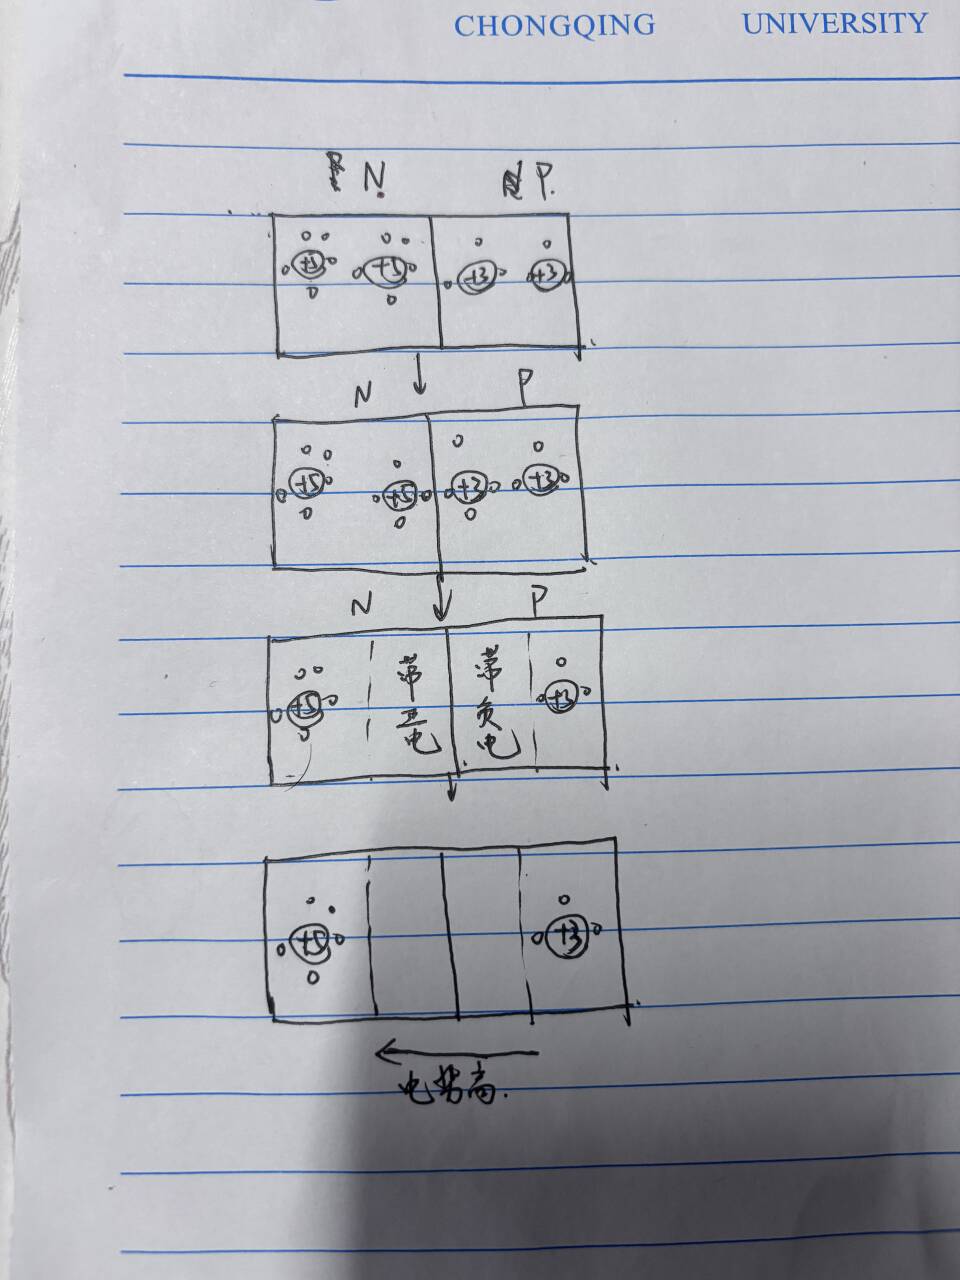 CHONGQING UNIVERSITY
N. P.
+5 +5 +3 +3
N P
+5 +5 +3 +3
N P
+5 带正电 带负电 +3
+5 +3
电势高.